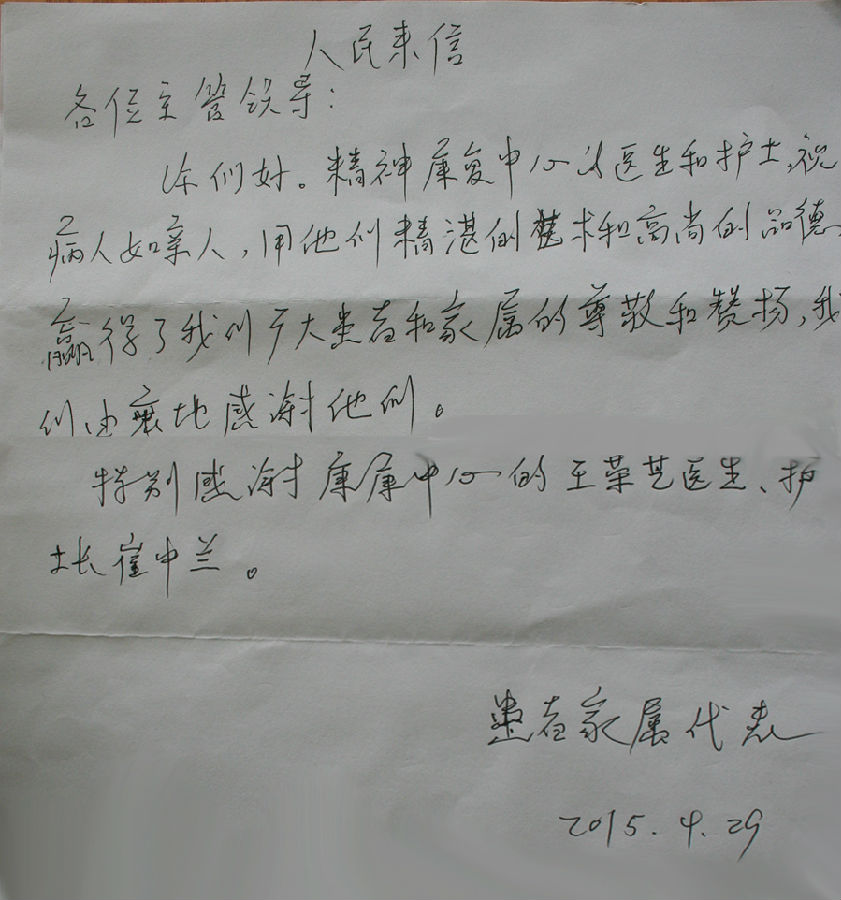 人民来信
各位主管领导：
你们好。精神康复中心的医生和护士，视
病人如亲人，用他们精湛的技术和高尚的品德，
赢得了我们广大患者和家属的尊敬和赞扬，我
们由衷地感谢他们。
特别感谢康复中心的王荣艺医生、护
士长崔中兰。
患者家属代表
2015.4.29